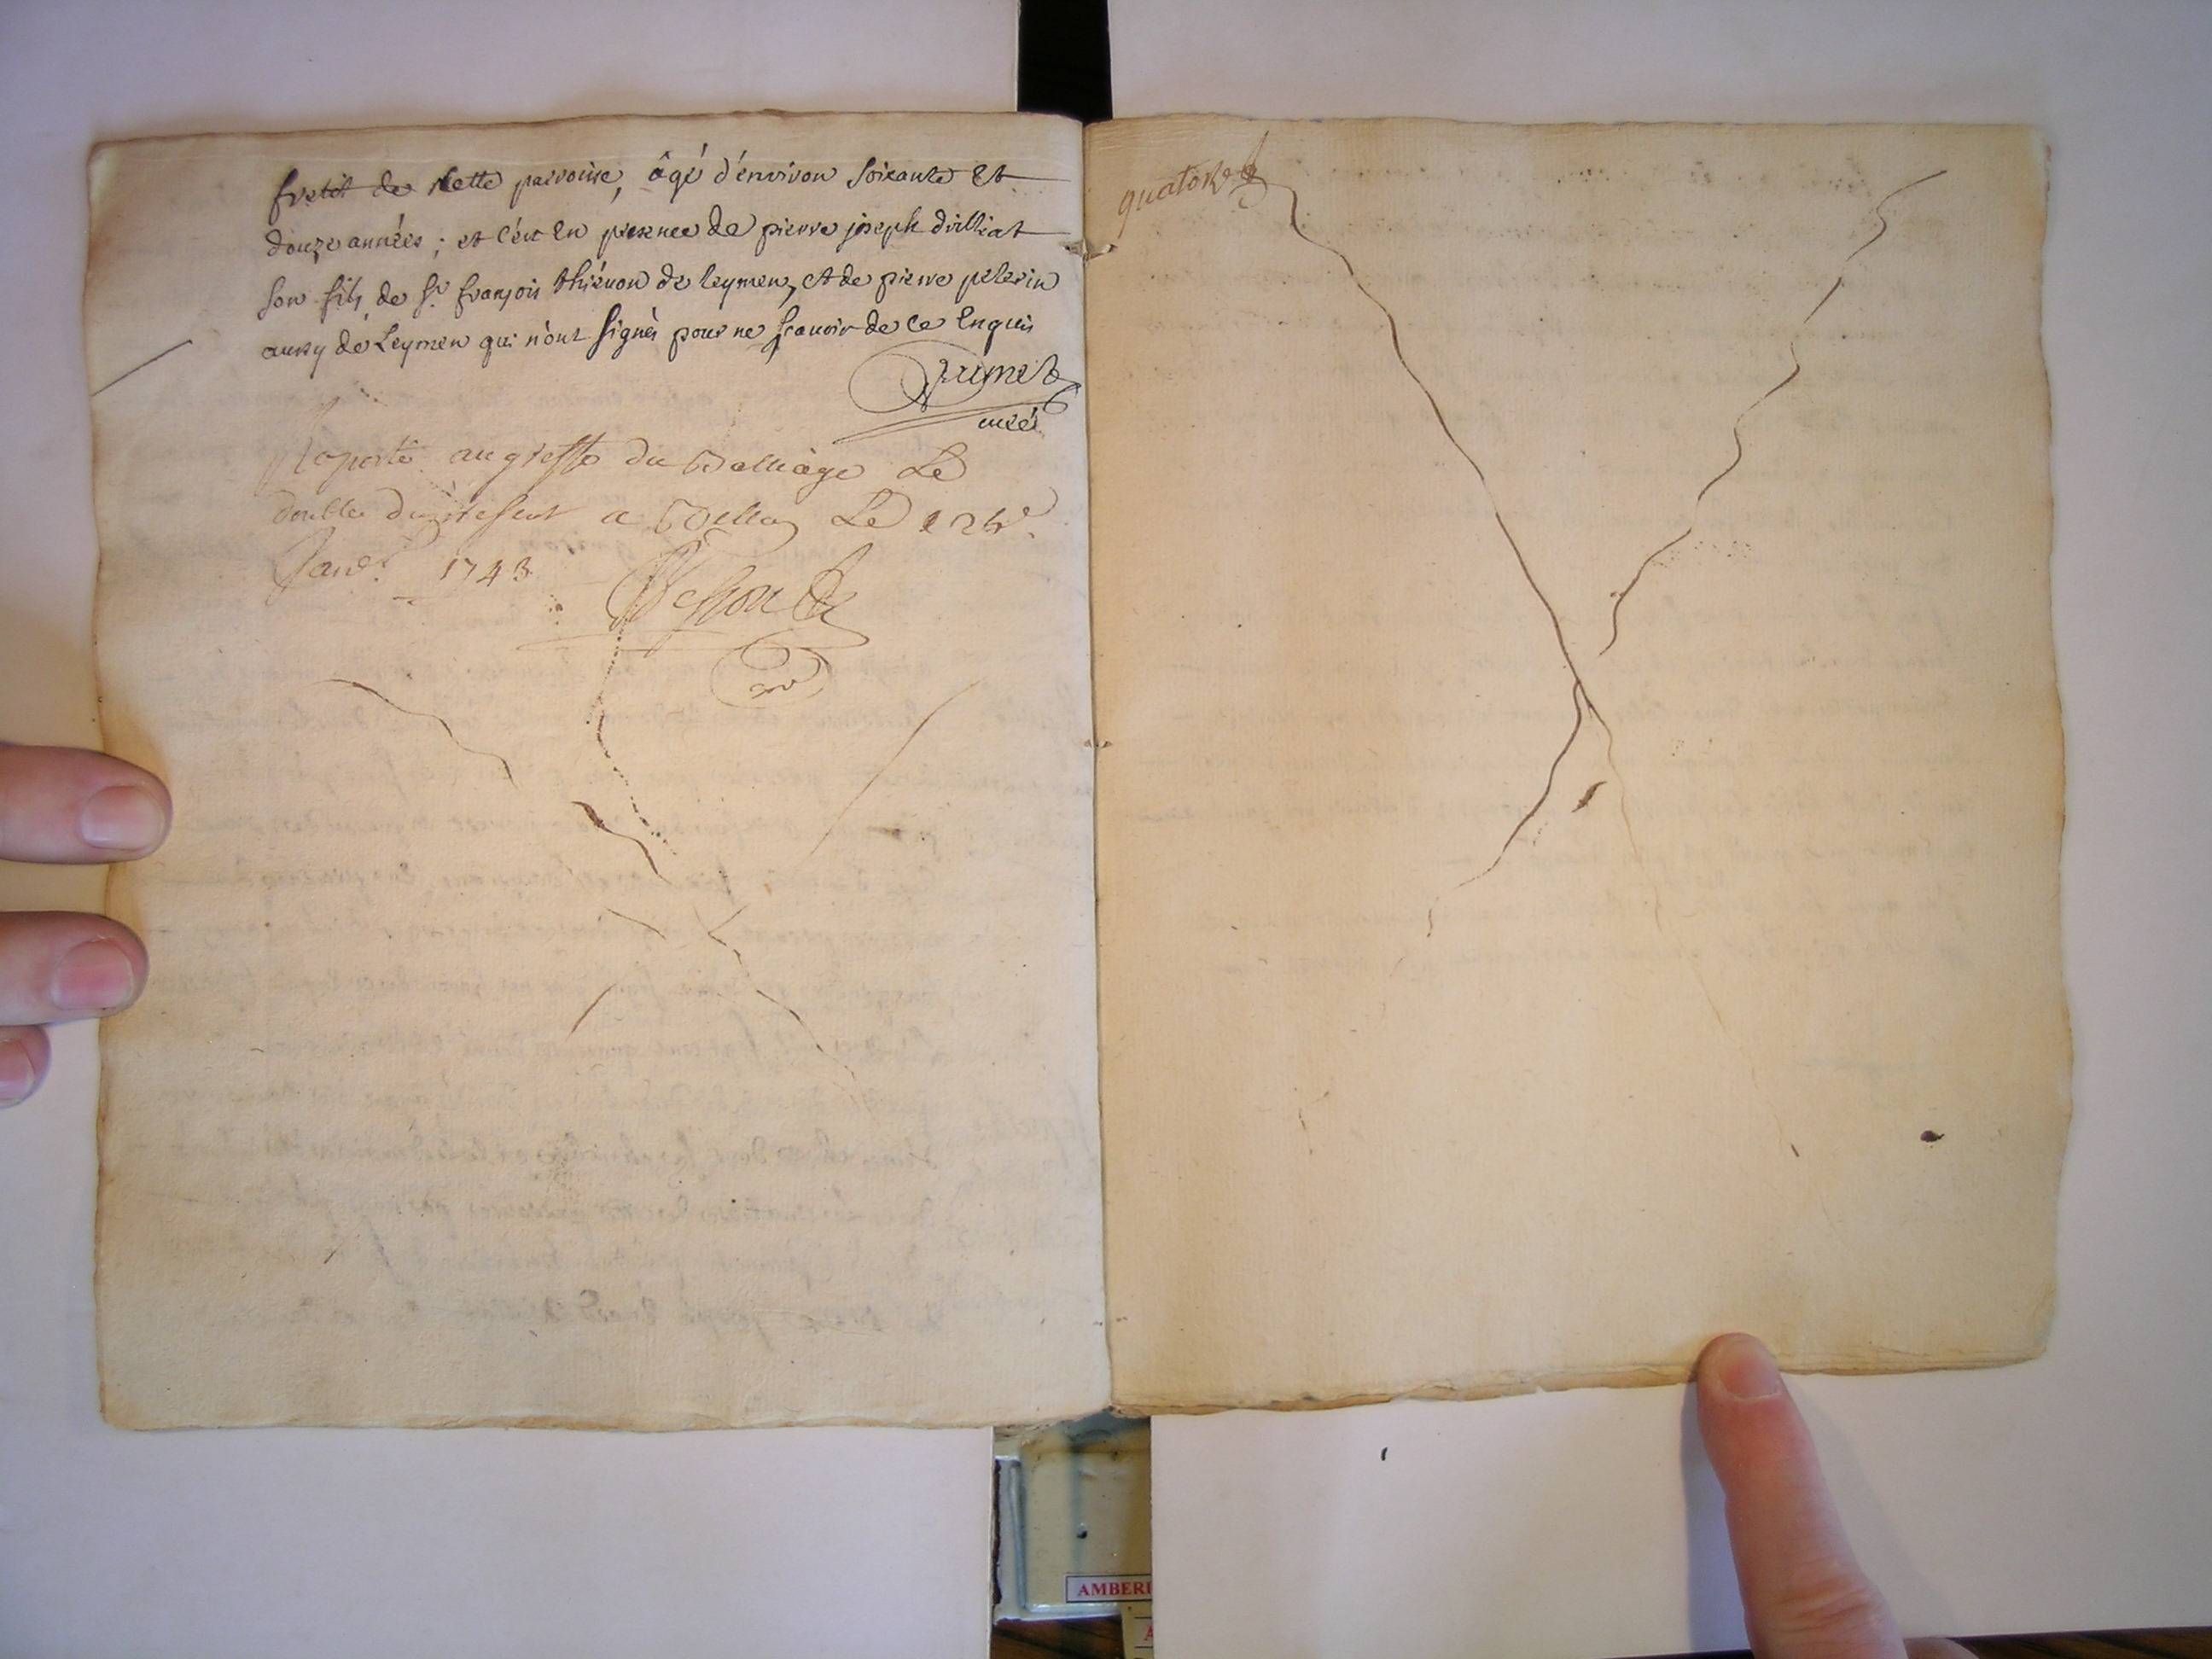 fretit de cette parroisse, âgé d'énviron soixante et
douze années ; et c'ést en presence de pierre joseph drilliat
son fils, de Sr. françois thiénon de leymen, et de pierre pelerin
aussy de Leymen qui n'ont signés pour ne sçavoir de ce enquis
curé
Raporté au greffe du Balliage Le
double du present a Belley Le
Janer. 1743
quatorze
AMBERI